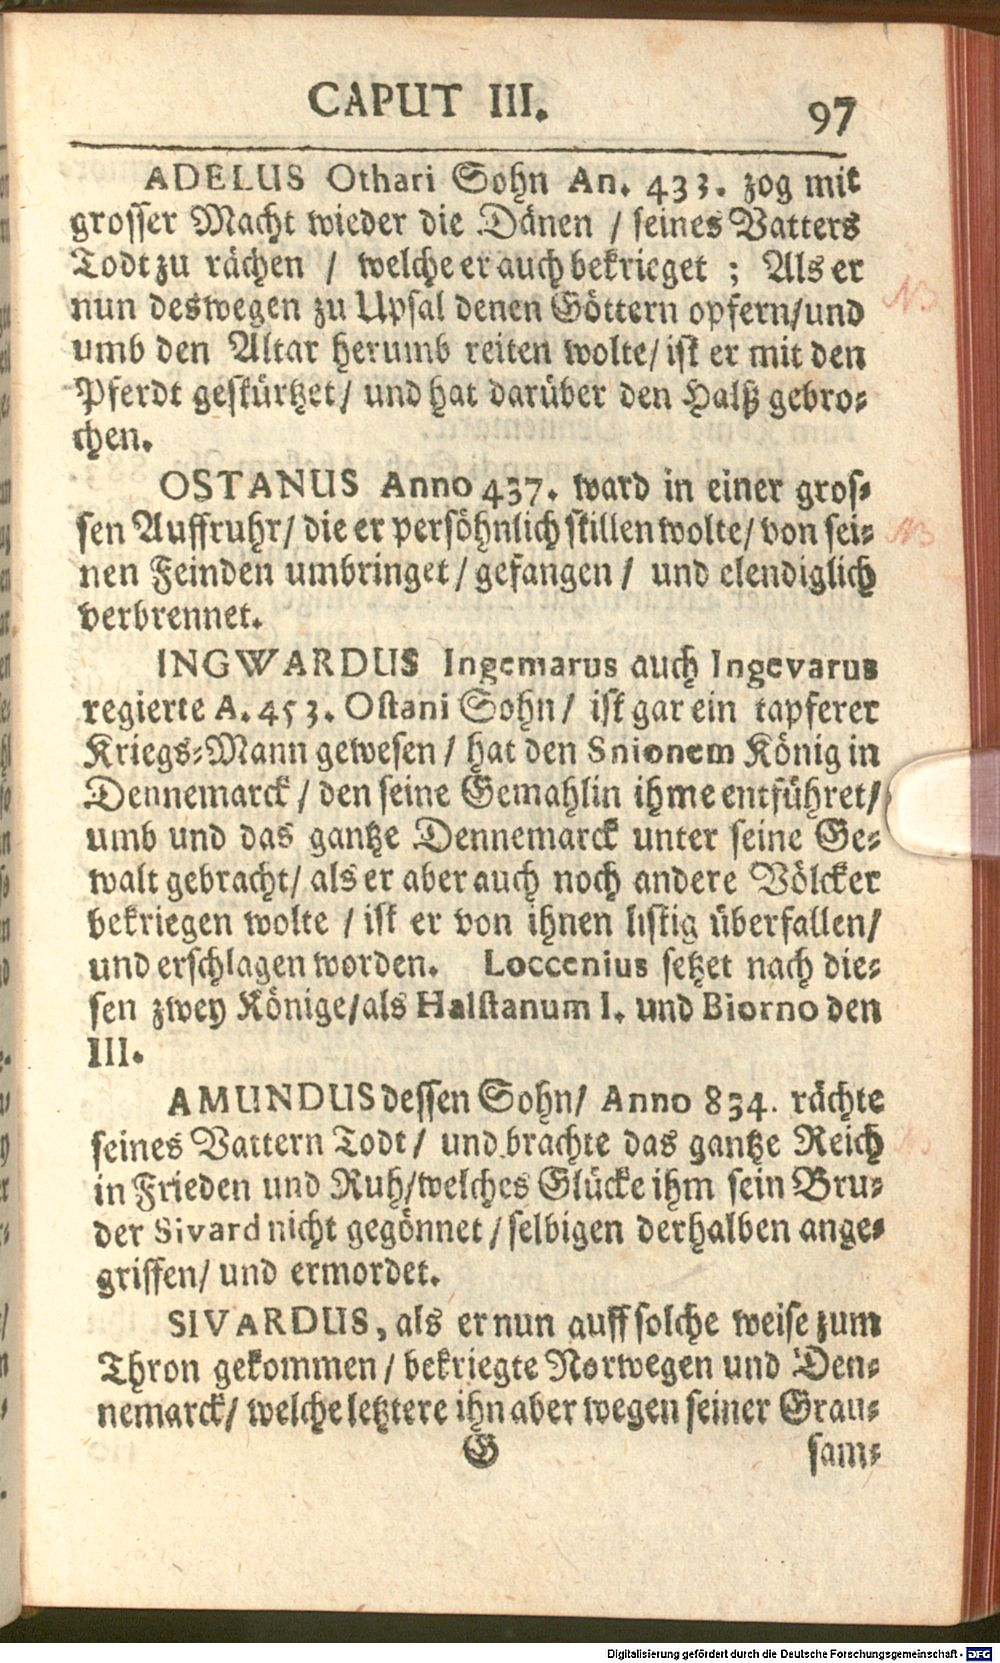 CAPUT III. 97
ADELUS Othari Sohn An. 433. zog mit
grosser Macht wieder die Dänen / seines Vatters
Todt zu rächen / welche er auch bekrieget ; Als er
nun deswegen zu Upsal denen Göttern opfern/und
umb den Altar herumb reiten wolte/ ist er mit den
Pferdt gestürtzet/ und hat darüber den Halß gebro-
chen.
OSTANUS Anno 437. ward in einer gros-
sen Auffruhr/ die er persöhnlich stillen wolte/ von sei-
nen Feinden umbringet / gefangen / und elendiglich
verbrennet.
INGWARDUS Ingemarus auch Ingevarus
regierte A. 453. Ostani Sohn / ist gar ein tapferer
Kriegs-Mann gewesen / hat den Snionem König in
Dennemarck / den seine Gemahlin ihme entführet/
umb und das gantze Dennemarck unter seine Ge-
walt gebracht/ als er aber auch noch andere Völcker
bekriegen wolte / ist er von ihnen listig überfallen/
und erschlagen worden. Loccenius setzet nach die-
sen zwey Könige/als Halstanum I. und Biorno den
III.
AMUNDUS dessen Sohn/ Anno 834. rächte
seines Vattern Todt / und brachte das gantze Reich
in Frieden und Ruh/welches Glücke ihm sein Bru-
der Sivard nicht gegönnet / selbigen derhalben ange-
griffen/ und ermordet.
SIVARDUS, als er nun auff solche weise zum
Thron gekommen / bekriegte Norwegen und Den-
nemarck/ welche letztere ihn aber wegen seiner Grau-
G sam-
NB
NB
Digitalisierung gefördert durch die Deutsche Forschungsgemeinschaft - DFG